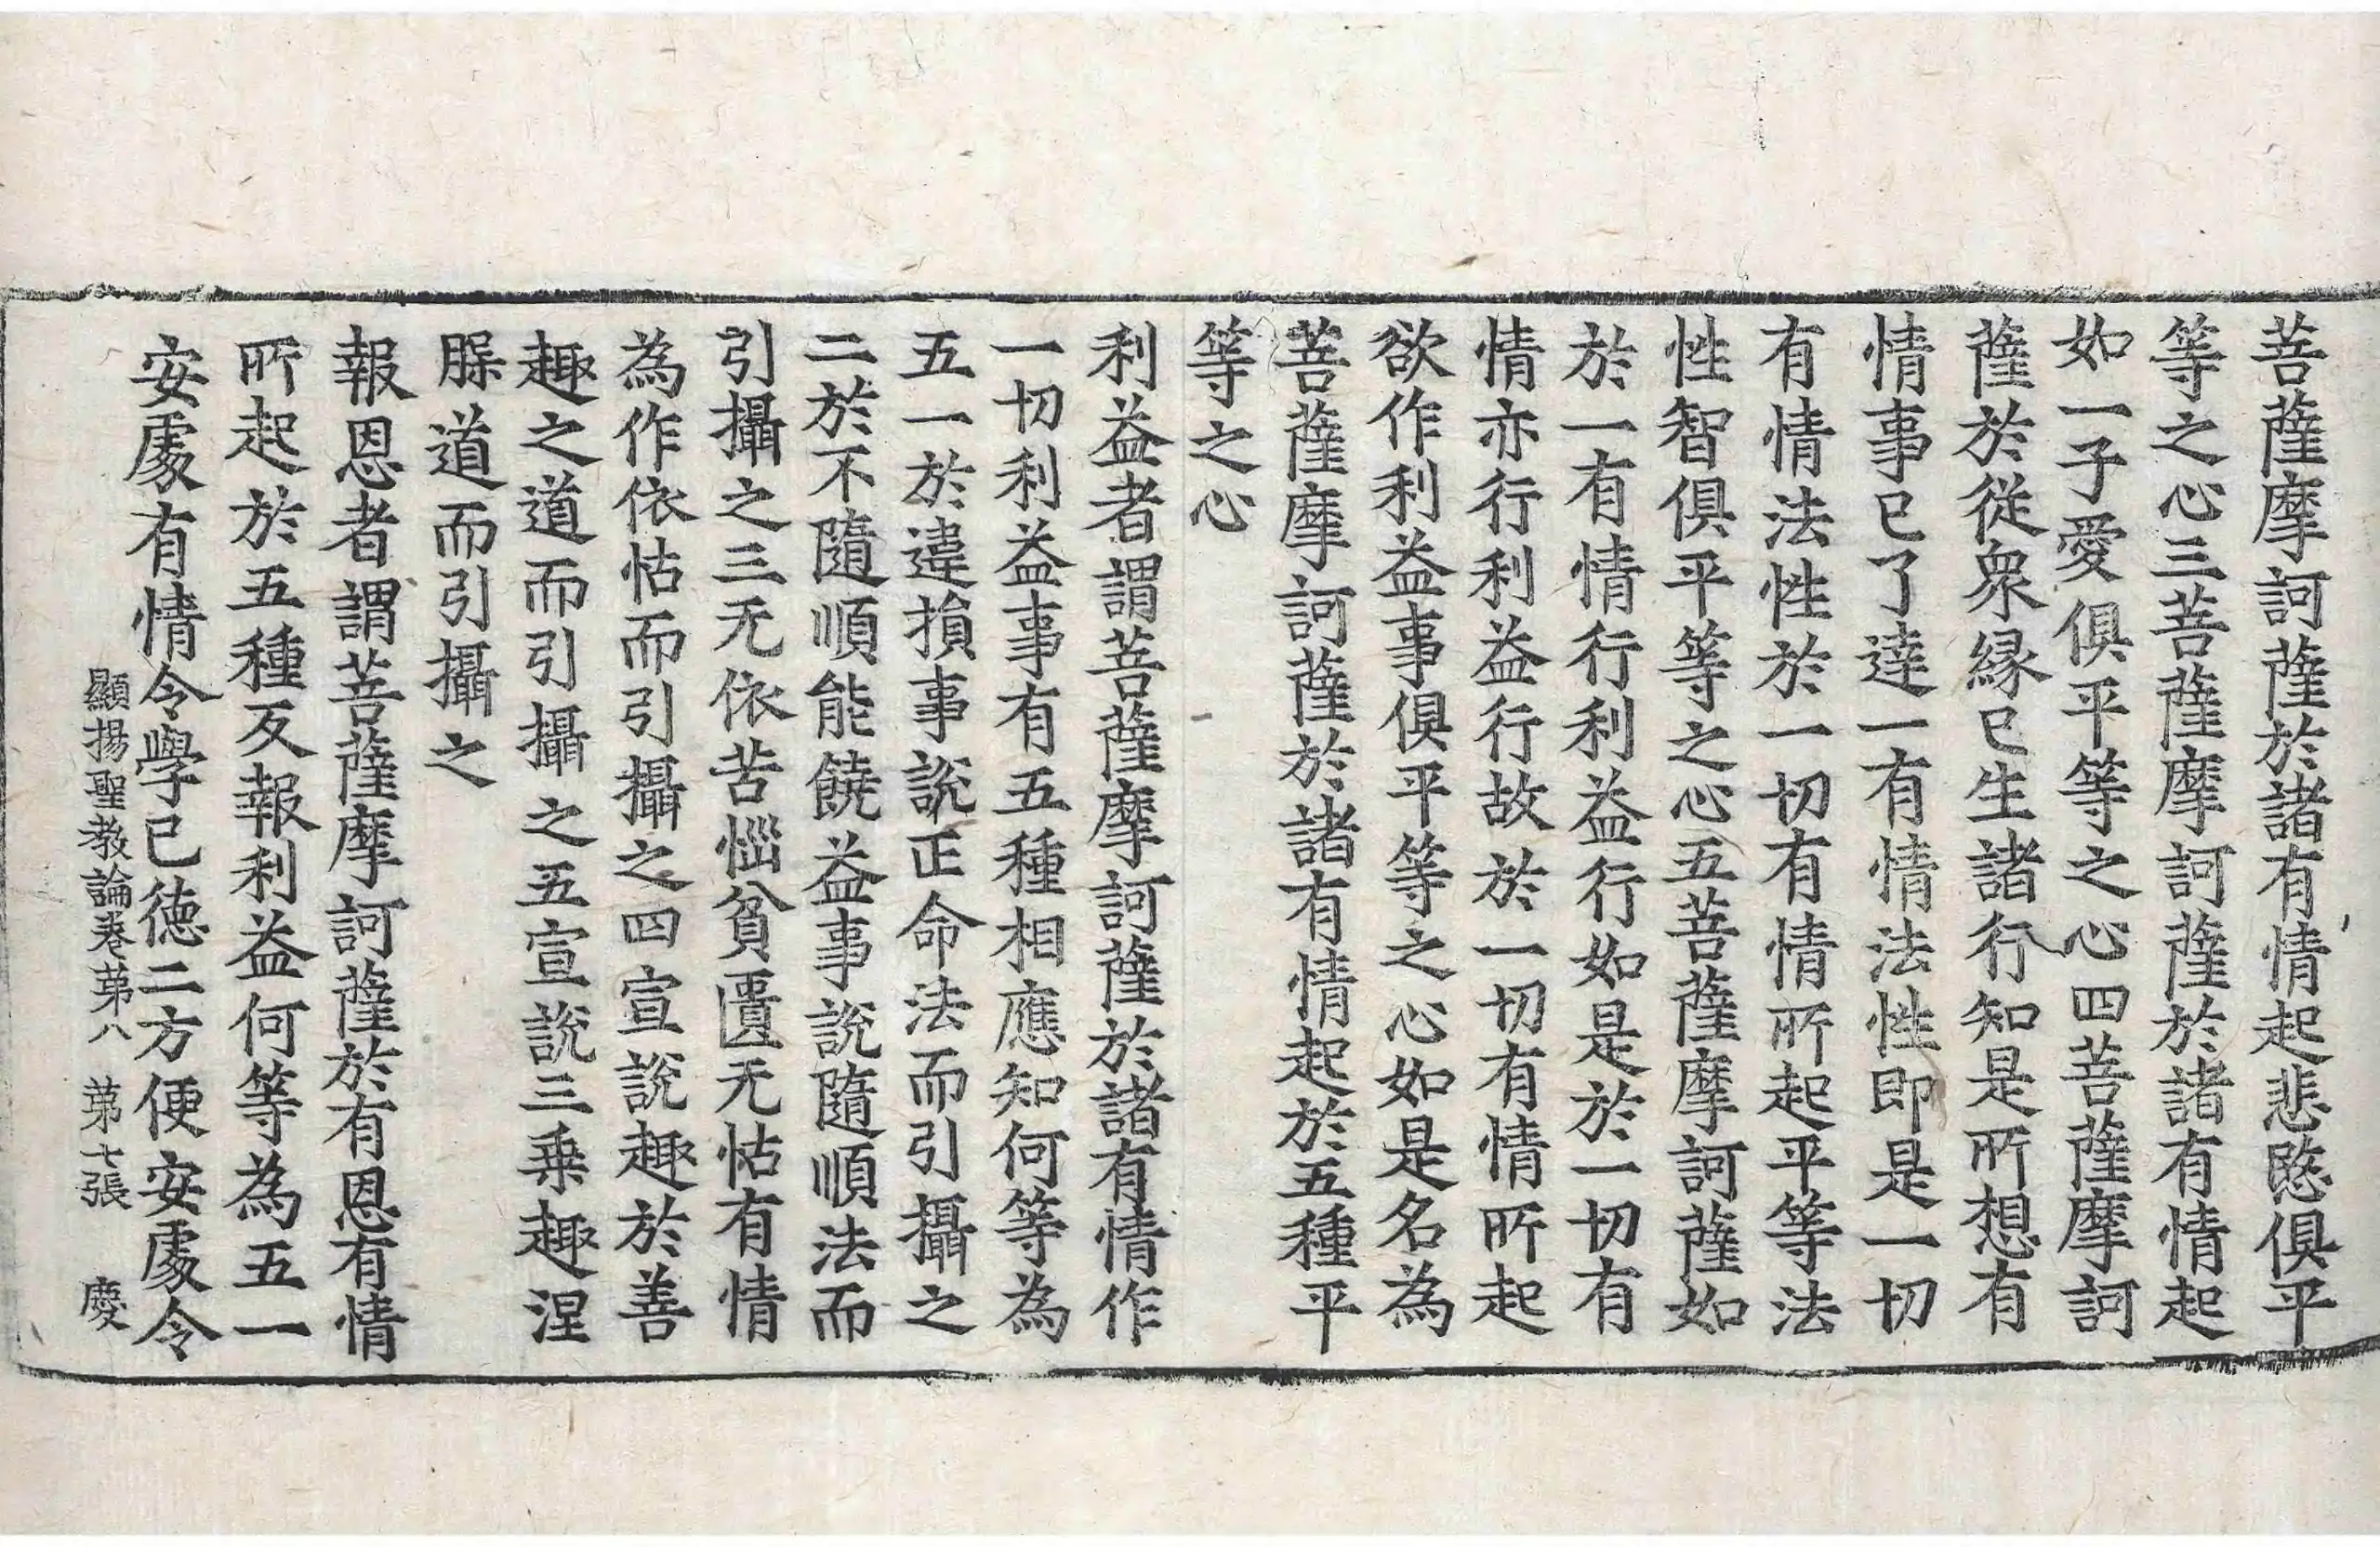 菩薩摩訶薩於諸有情起悲愍俱平
等之心三菩薩摩訶薩於諸有情起
如一子愛俱平等之心四菩薩摩訶
薩於從衆緣已生諸行知是所想有
情事已了達一有情法性即是一切
有情法性於一切有情所起平等法
性智俱平等之心五菩薩摩訶薩如
於一有情行利益行如是於一切有
情亦行利益行故於一切有情所起
欲作利益事俱平等之心如是名為
菩薩摩訶薩於諸有情起於五種平
等之心
利益者謂菩薩摩訶薩於諸有情作
一切利益事有五種相應知何等為
五一於違損事說正命法而引攝之
二於不隨順能饒益事說隨順法而
引攝之三无依苦惱貧匱无怙有情
為作依怙而引攝之四宣說趣於善
趣之道而引攝之五宣說三乗趣涅
脲道而引攝之
報恩者謂菩薩摩訶薩於有恩有情
所起於五種反報利益何等為五一
安處有情令學己德二方便安處令
顯揚聖教論卷苐八 苐七張 慶